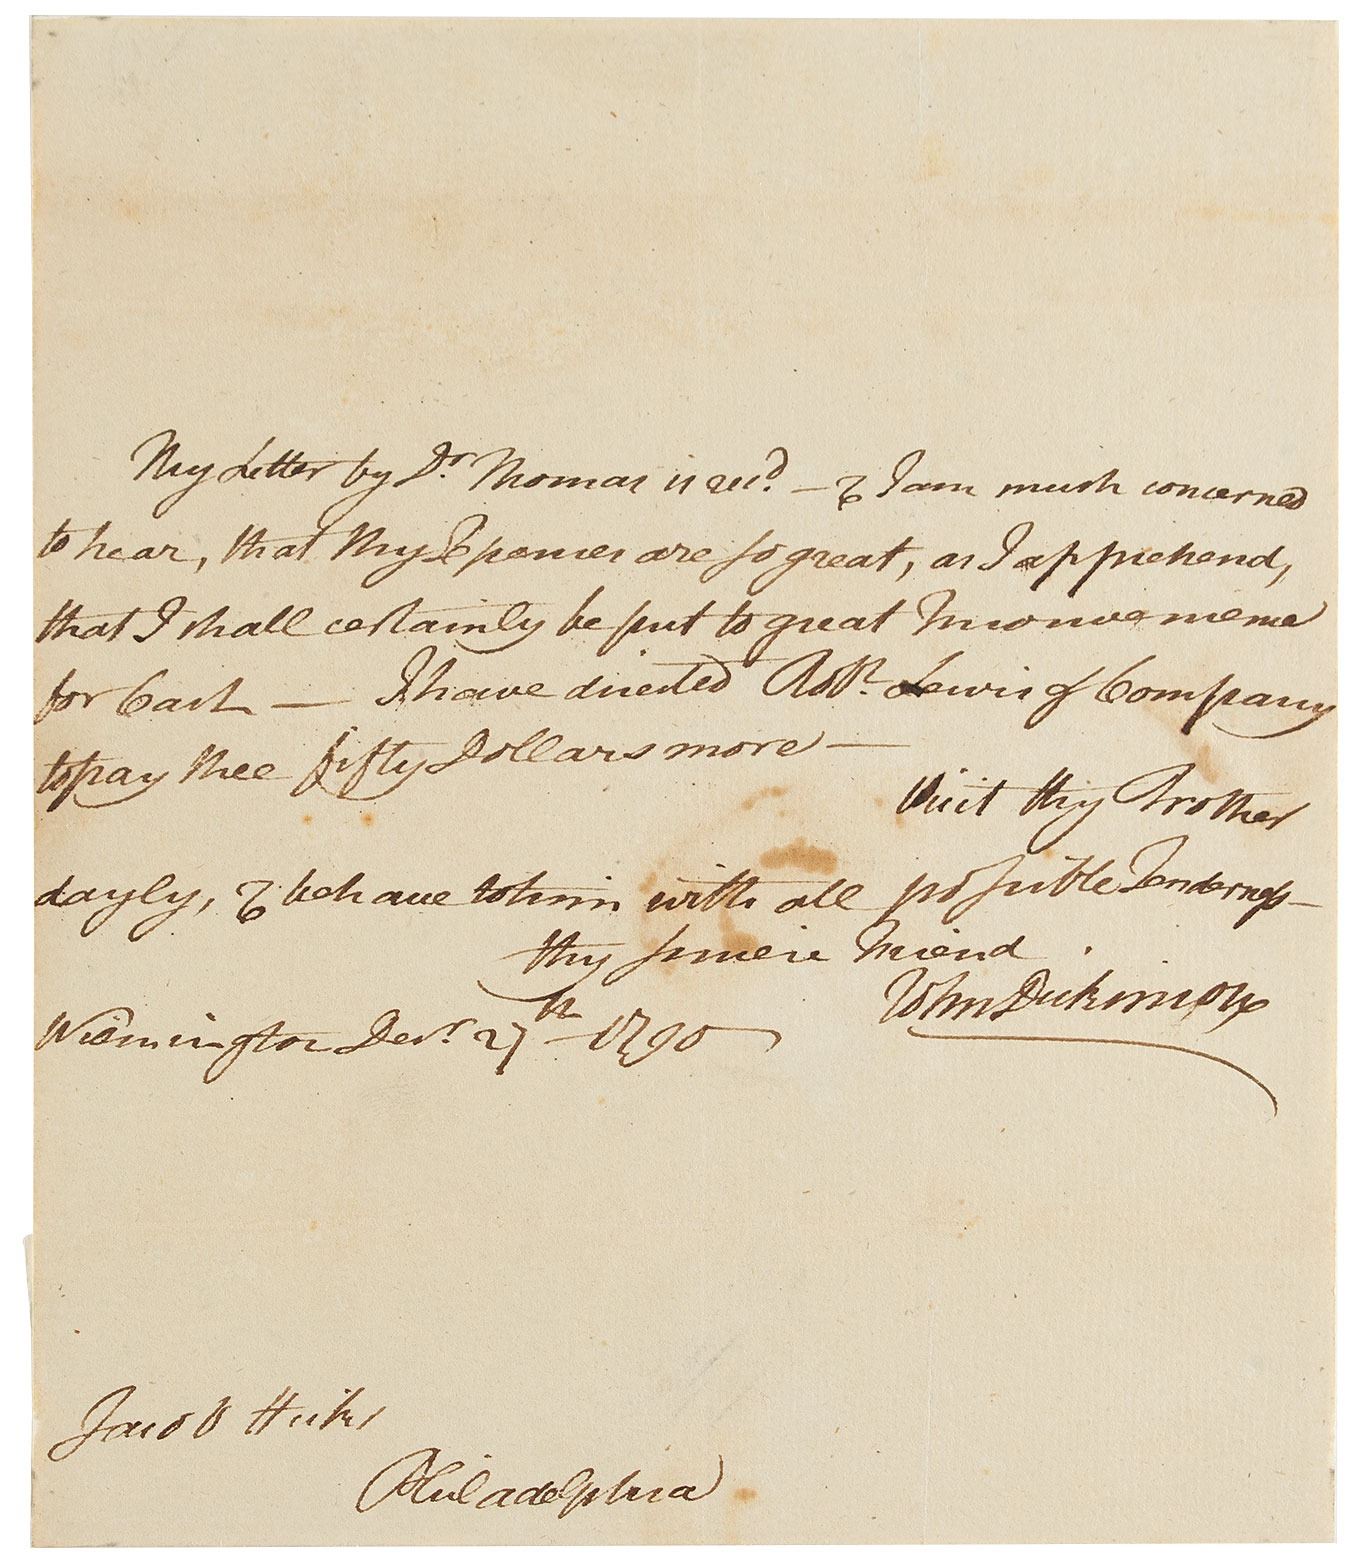 Thy Letter by Dr. Thomas is recd. — & I am much concerned
to hear, that thy Expences are so great, as I apprehend,
that I shall certainly be put to great Inconvenience
for Cash — I have directed Robt. Lewis & Company
to pay thee fifty Dollars more —
Visit thy Brother
dayly, & behave to him with all possible Tenderness —
thy sincere Friend
John Dickinson
Wilmington Decr. 27th 1790
Jacob Hicks
Philadelphia